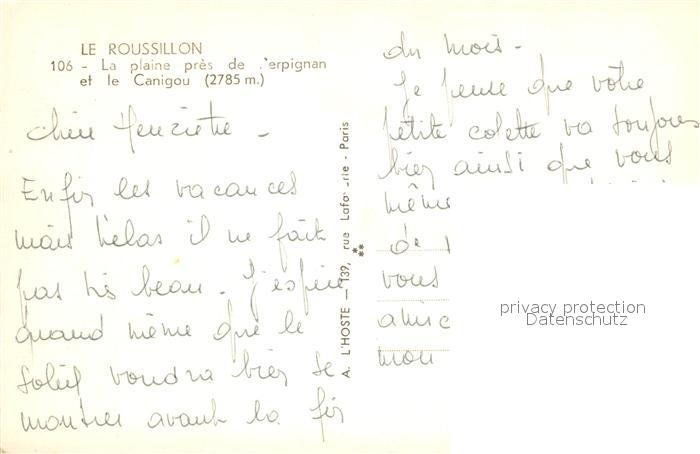 LE ROUSSILLON
106 - La plaine près de Perpignan
et le Canigou (2785 m.)
Chère Henriette -
Enfin les vacances
mais hélas il ne fait
pas très beau. J'espère
quand même que le
soleil voudra bien se
montrer avant la fin
A. L'HOSTE - 139, rue - Paris
du mois -
Je pense que votre
petite colette va toujours
bien ainsi que vous
même
de
vous
amic
mon
privacy protection
Datenschutz